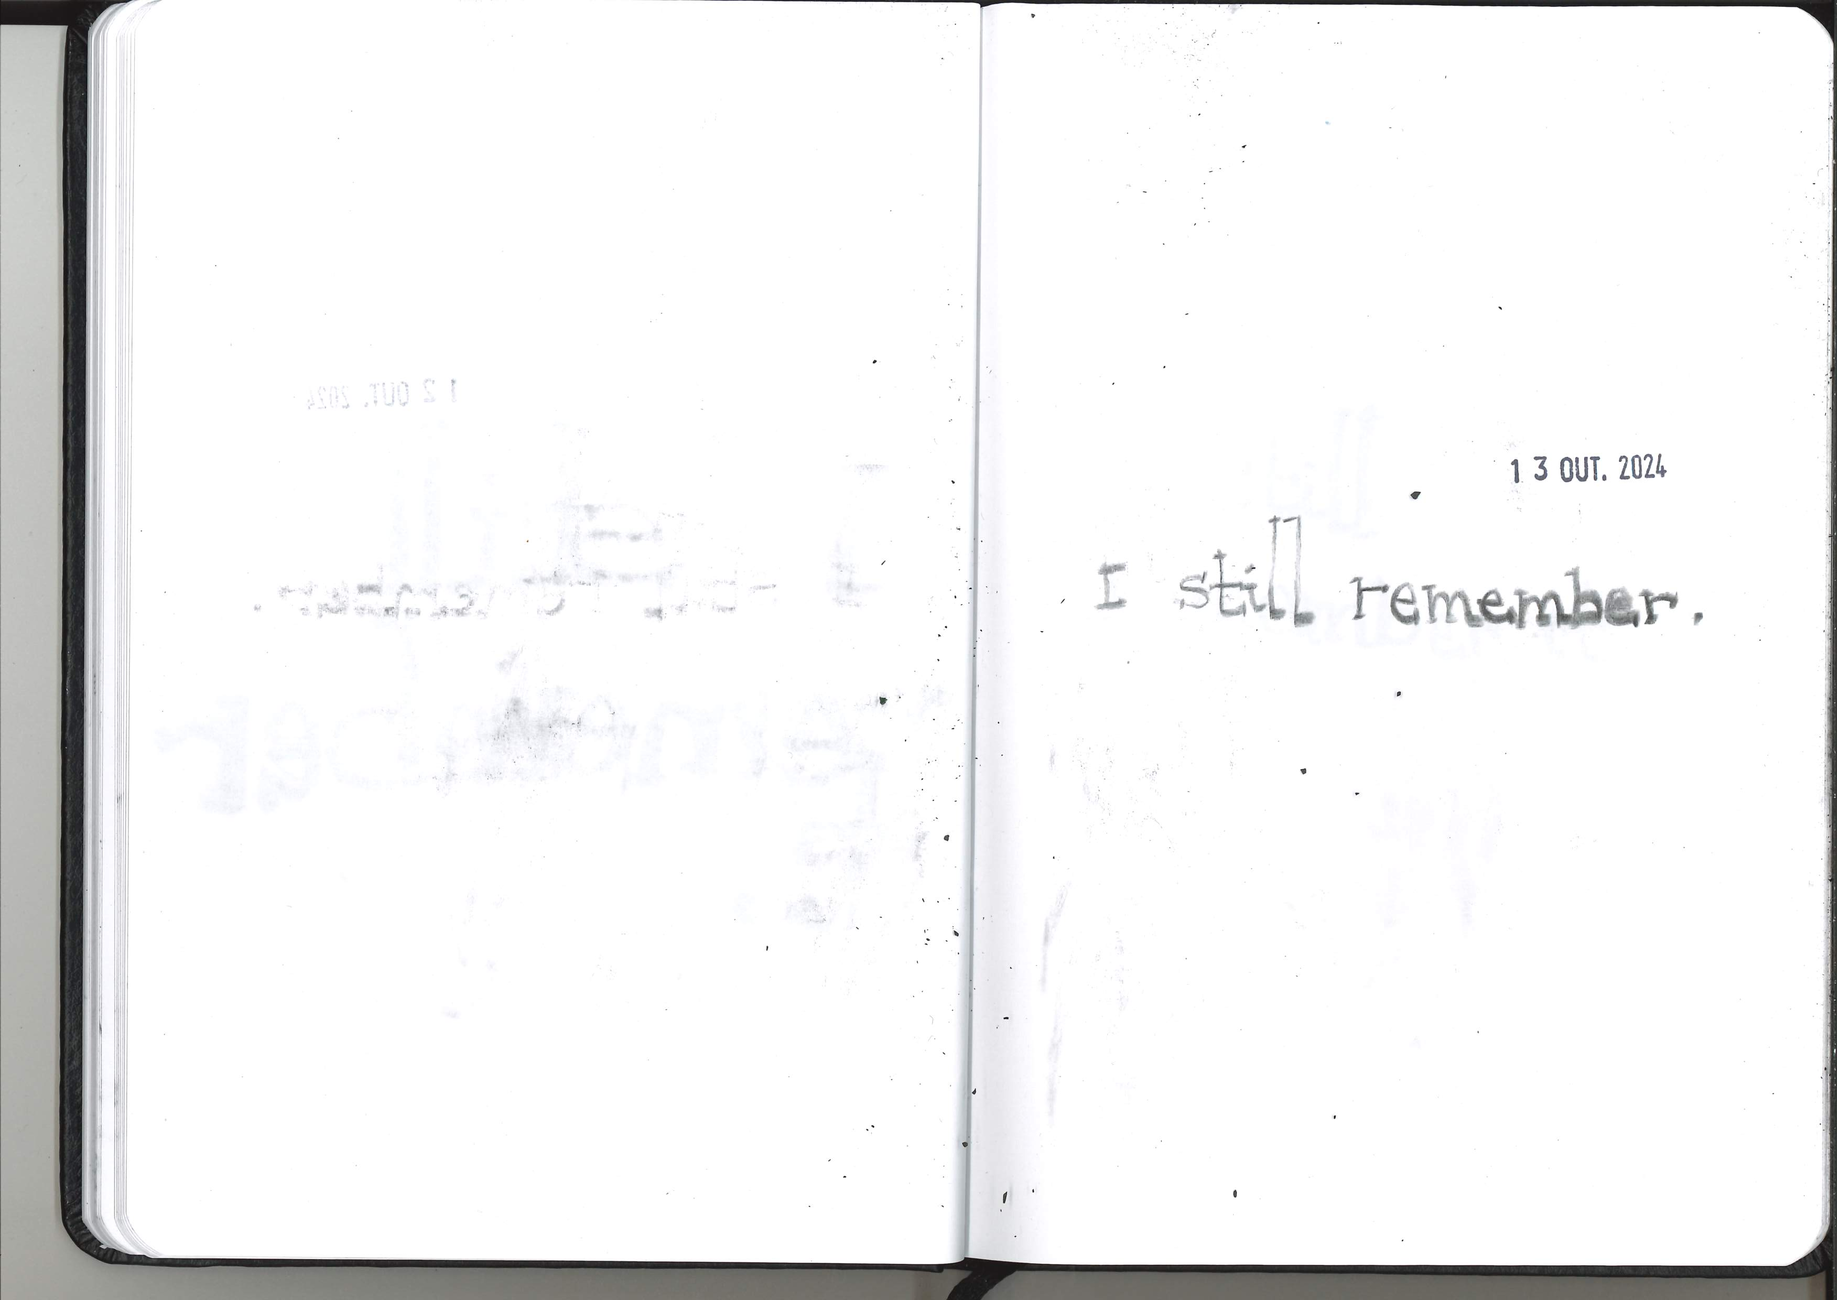 13 OUT. 2024
I still remember.